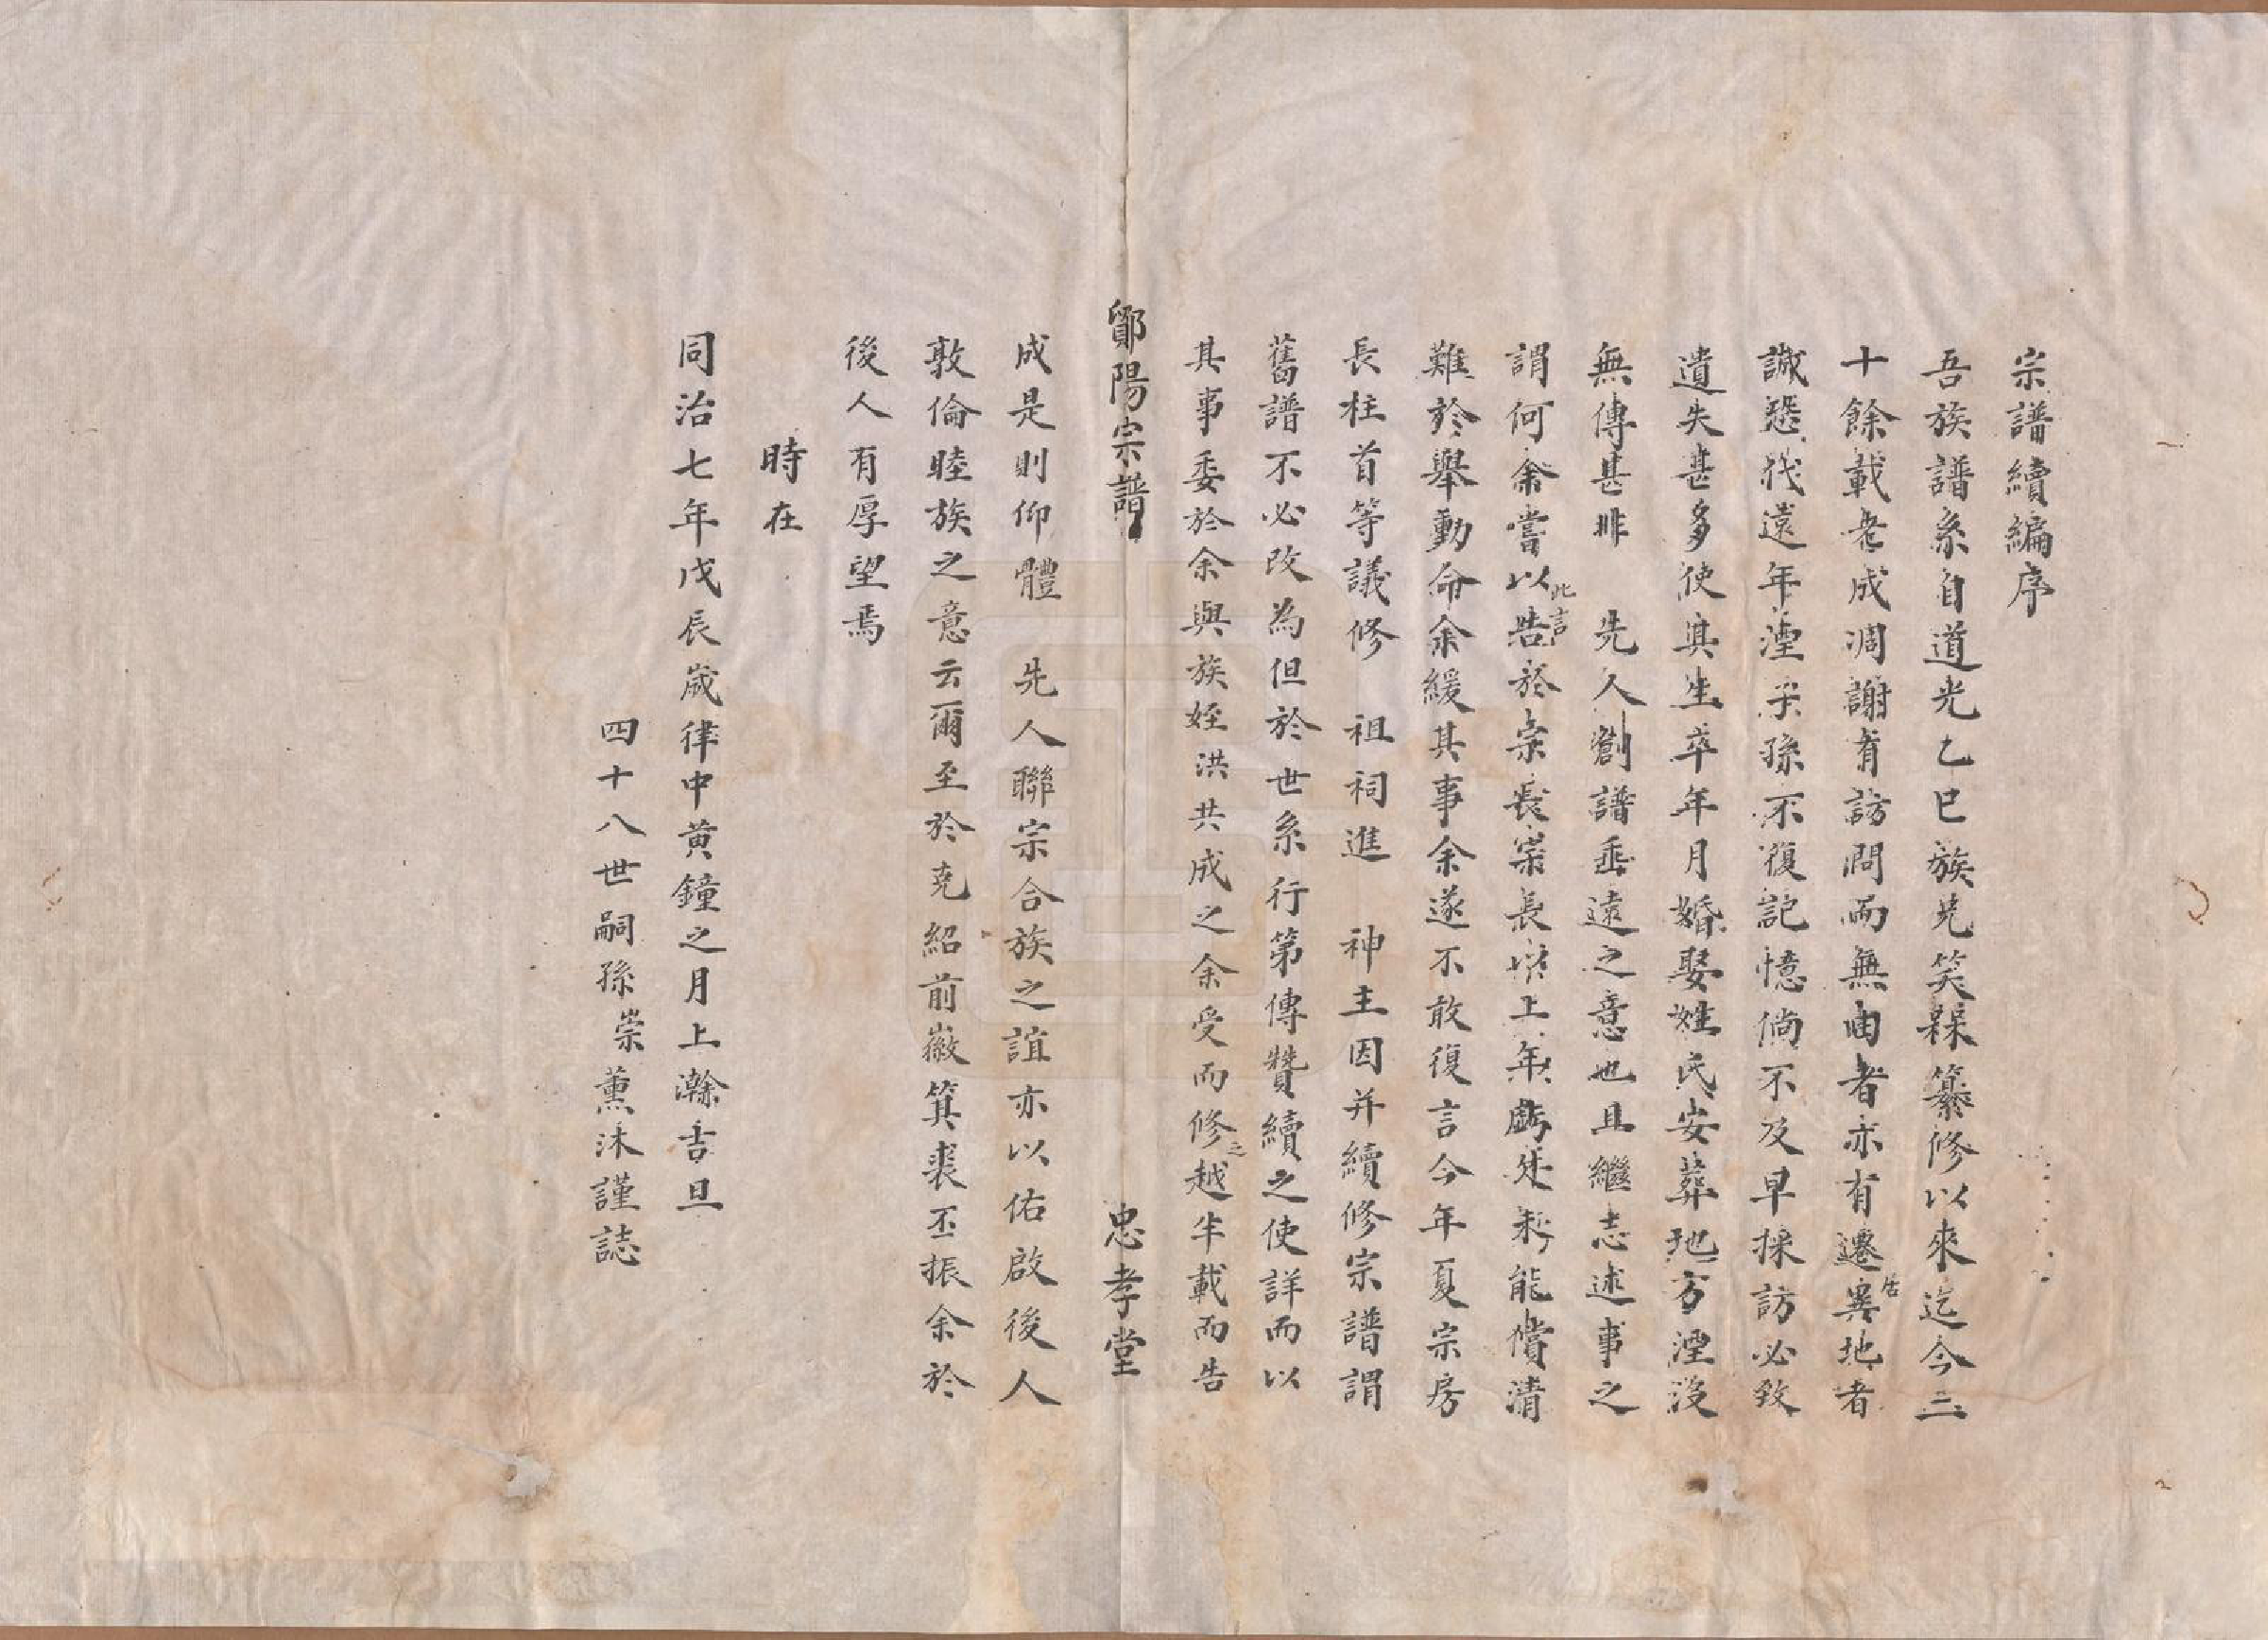 宗譜續編序
吾族譜系自道光乙巳族兄笑槑纂修以來迄今二
十餘載老成凋謝有訪問而無由者亦有遷居異地者
誠恐代遠年湮子孫不復記憶倘不及早採訪必致
遺失甚多使其生卒年月婚娶姓氏安葬地方湮沒
無傳甚非　先人創譜垂遠之意也且繼志述事之
謂何余嘗以此言告於宗長宗長以上年虧歉未能償清
難於舉動命余緩其事余遂不敢復言今年夏宗房
長柱首等議修　祖祠進　神主因并續修宗譜謂
舊譜不必改為但於世系行第傳贊續之使詳而以
其事委於余與族姪洪共成之余受而修之越半載而告
鄮陽宗譜　忠孝堂
成是則仰體　先人聯宗合族之誼亦以佑啟後人
敦倫睦族之意云爾至於克紹前徽箕裘丕振余於
後人有厚望焉
時在
同治七年戊辰歲律中黃鐘之月上澣吉旦
四十八世嗣孫崇薰沐謹誌